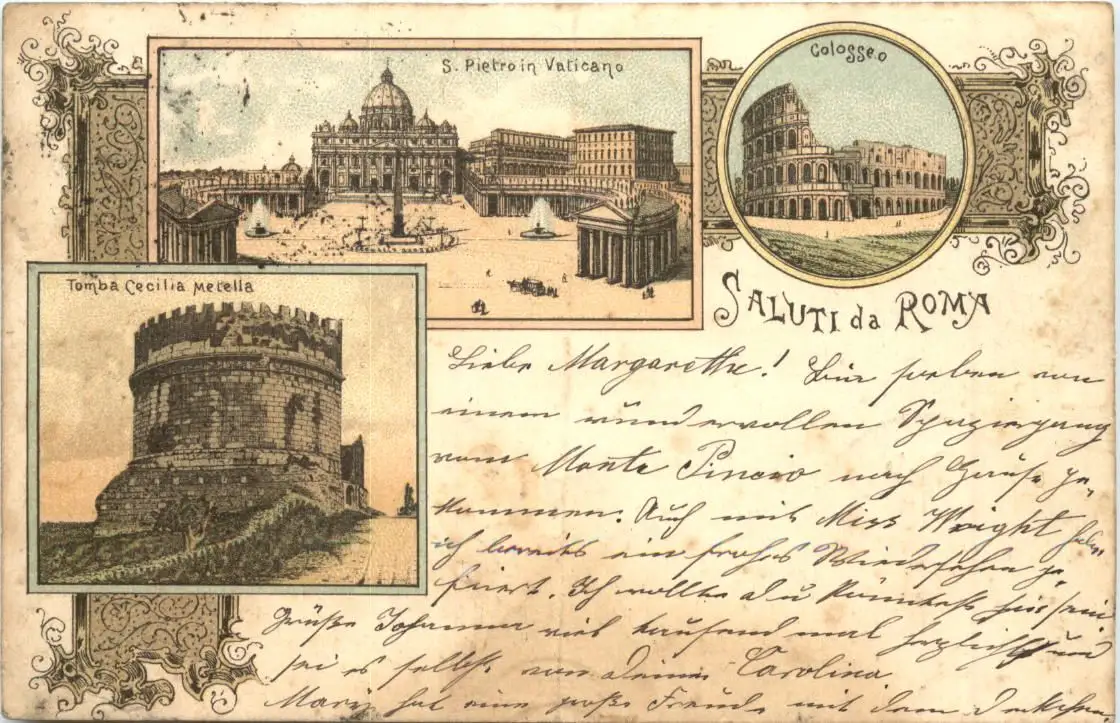 S. Pietro in Vaticano
Colosseo
Tomba Cecilia Metella
SALUTI da ROMA
Liebe Margarethe! Wir soeben von
einem wundervollen Spaziergang
vom Monte Pincio nach Hause ge-
kommen. Auch mit Miss Wright habe
ich bereits ein frohes Wiedersehen ge-
feiert. Ich wollte du
Grüße Johanna viel tausend mal herzlichst und
sei es selbst von deiner Carolina
Marie hat eine große Freude mit dem